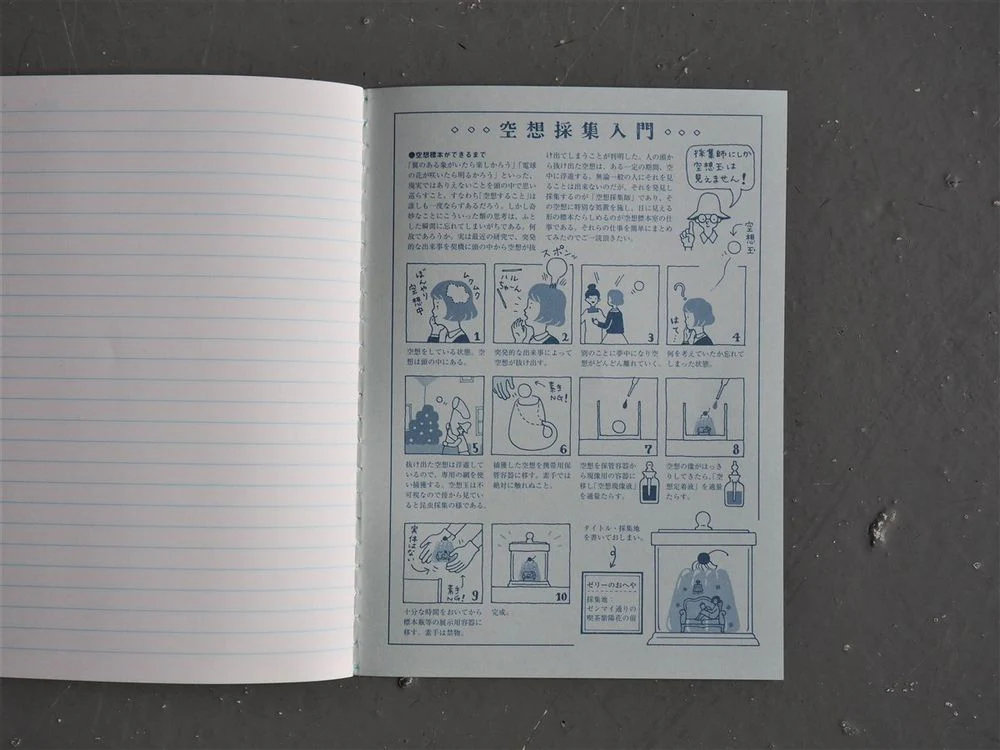 空想採集入門
●空想標本ができるまで
「翼のある象がいたら楽しかろう」「電球
の花が咲いたら明るかろう」といった、
現実ではありえないことを頭の中で思い
巡らすこと、すなわち「空想すること」は
誰しも一度ならずあるだろう。しかし奇
妙なことにこういった類の思考は、ふと
した瞬間に忘れてしまいがちである。何
故であろうか。実は最近の研究で、突発
的な出来事を契機に頭の中から空想が抜
け出てしまうことが判明した。人の頭か
ら抜け出た空想は、ある一定の期間、空
中に浮遊する。無論一般の人にそれを見
ることは出来ないのだが、それを発見し
採集するのが「空想採集師」であり、そ
の空想に特別な処置を施し、目に見える
形の標本たらしめるのが空想標本室の仕
事である。それらの仕事を簡単にまとめ
てみたのでご一読頂きたい。
採集師にしか
空想玉は
見えません!
空想玉
ぼんやり
空想中
ムクムク
1
空想をしている状態。空
想は頭の中にある。
スポンッ
ハル
ちゃーん
2
突発的な出来事によって
空想が抜け出す。
3
別のことに夢中になり空
想がどんどん離れていく。
?
はて…
4
何を考えていたか忘れて
しまった状態。
5
抜け出た空想は浮遊して
いるので、専用の網を使
い捕獲する。空想玉は不
可視なので傍から見てい
ると昆虫採集の様である。
素手
NG!
6
捕獲した空想を携帯用保
管容器に移す。素手では
絶対に触れぬこと。
7
空想を保管容器か
ら現像用の容器に
移し「空想現像液」
を適量たらす。
8
空想の像がはっき
りしてきたら、「空
想定着液」を適量
たらす。
実体はない
素手
NG!
9
十分な時間をおいてから
標本瓶等の展示用容器に
移す。素手は禁物。
10
完成。
タイトル・採集地
を書いておしまい。
ゼリーのおへや
採集地:
ゼンマイ通りの
喫茶紫陽花の前